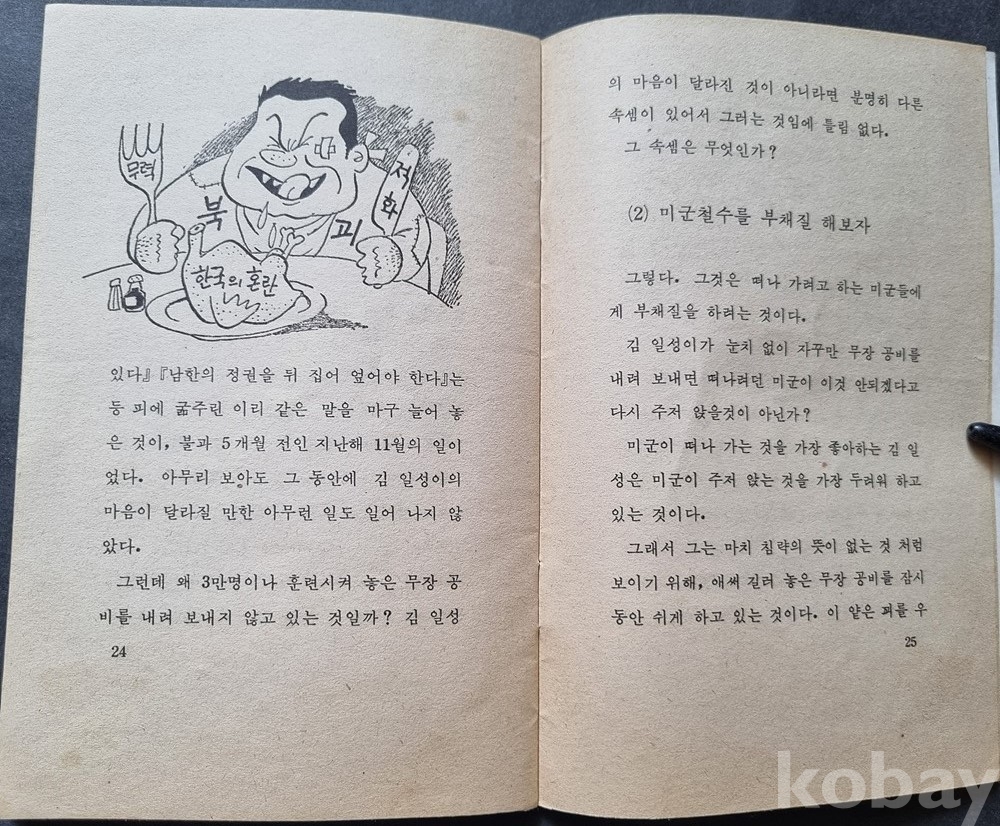 무력
적화
북괴
한국의 혼란
있다』『남한의 정권을 뒤 집어 엎어야 한다』는
등 피에 굶주린 이리 같은 말을 마구 늘어 놓
은 것이, 불과 5개월 전인 지난해 11월의 일이
었다. 아무리 보아도 그 동안에 김 일성이의
마음이 달라질 만한 아무런 일도 일어 나지 않
았다.
그런데 왜 3만명이나 훈련시켜 놓은 무장 공
비를 내려 보내지 않고 있는 것일까? 김 일성
24
의 마음이 달라진 것이 아니라면 분명히 다른
속셈이 있어서 그러는 것임에 틀림 없다.
그 속셈은 무엇인가?
(2) 미군철수를 부채질 해보자
그렇다. 그것은 떠나 가려고 하는 미군들에
게 부채질을 하려는 것이다.
김 일성이가 눈치 없이 자꾸만 무장 공비를
내려 보내면 떠나려던 미군이 이것 안되겠다고
다시 주저 앉을것이 아닌가?
미군이 떠나 가는 것을 가장 좋아하는 김 일
성은 미군이 주저 앉는 것을 가장 두려워 하고
있는 것이다.
그래서 그는 마치 침략의 뜻이 없는 것 처럼
보이기 위해, 애써 길러 놓은 무장 공비를 잠시
동안 쉬게 하고 있는 것이다. 이 얕은 꾀를 우
25
kobay